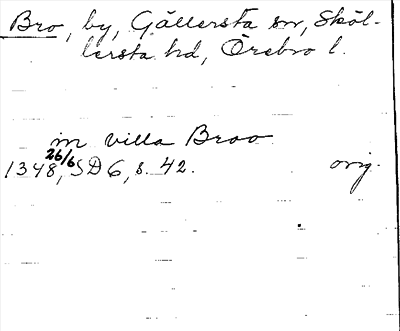 Bro, by, Gällersta sn, Sköl-
lersta hd, Örebro l.
in villa Broo
26/6
1348, SD 6, s. 42. orig.